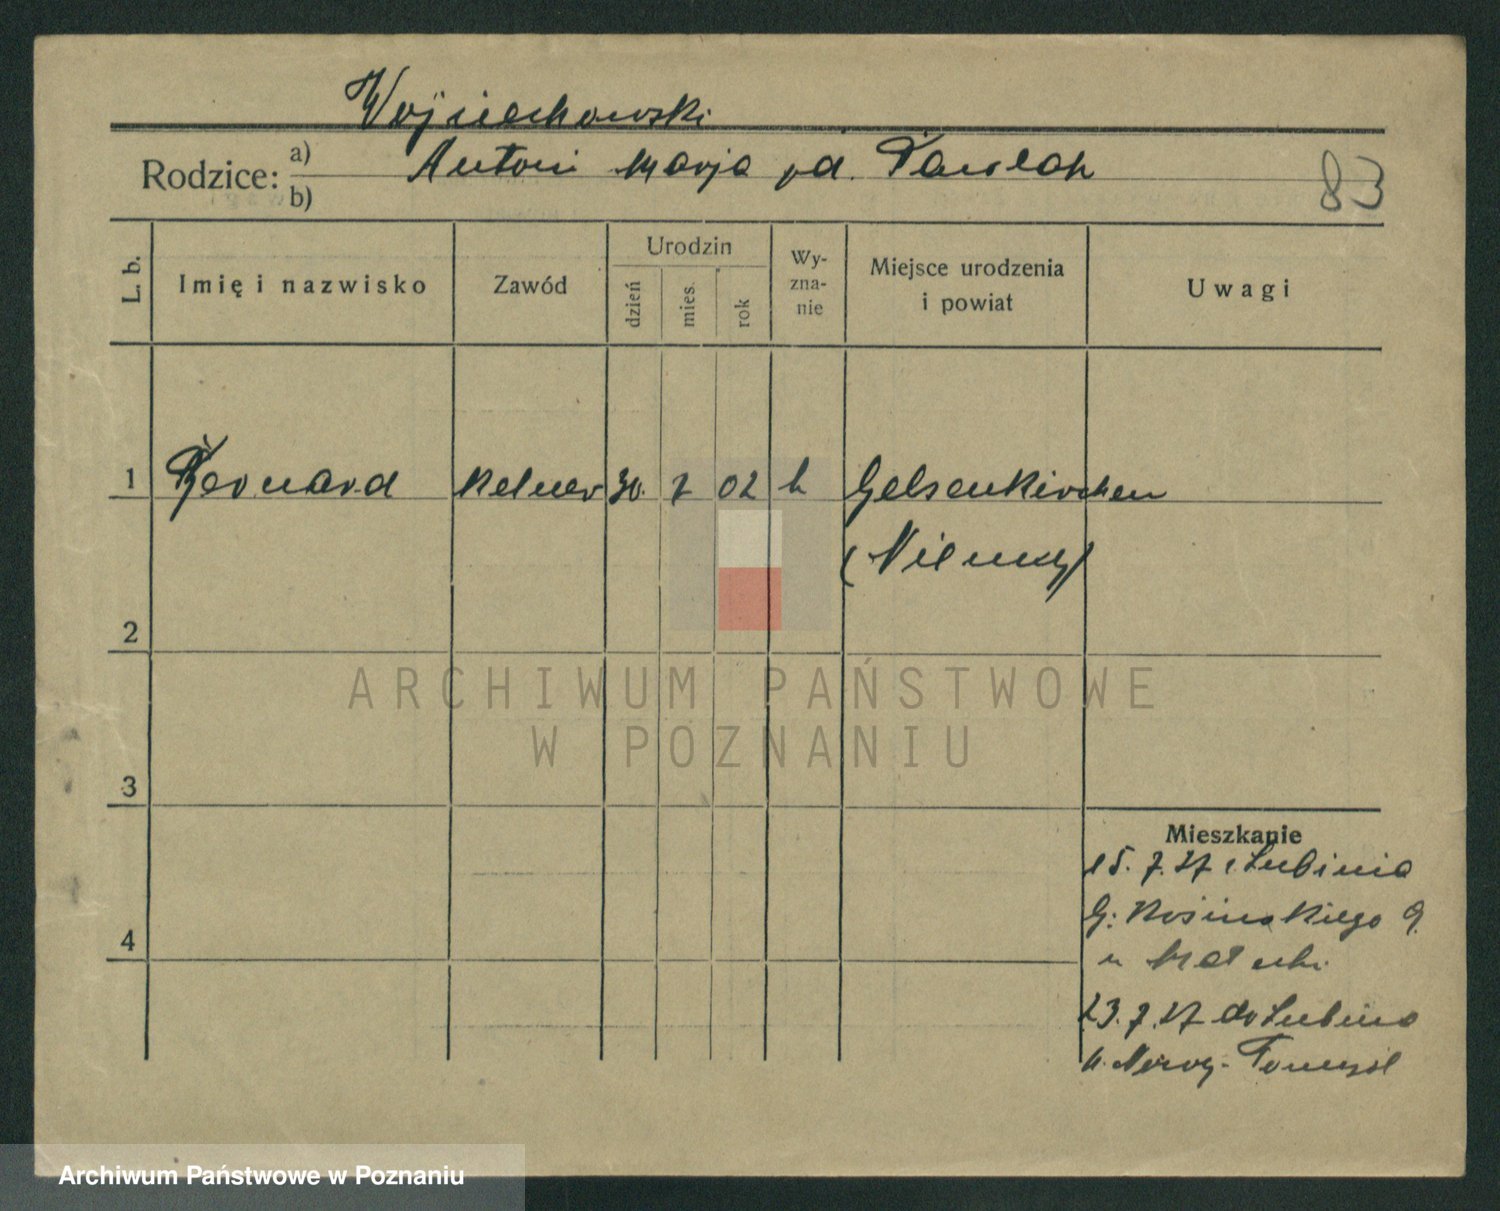 Wojciechowski
Rodzice: a) Antoni Marja yd. Pawlak
b)
83
L. b.
Imię i nazwisko
Zawód
Urodzin
dzień
mies.
rok
Wy-
zna-
nie
Miejsce urodzenia
i powiat
Uwagi
1 Bernard kelner 30. 7 02 k Gelsenkirchen
(Niemcy)
2
ARCHIWUM PAŃSTWOWE
W POZNANIU
3
Mieszkanie
15. 7. 27 z Lubinia
G:
u
4
23. 7. 27 do Lubinia
Tomyśl
Archiwum Państwowe w Poznaniu